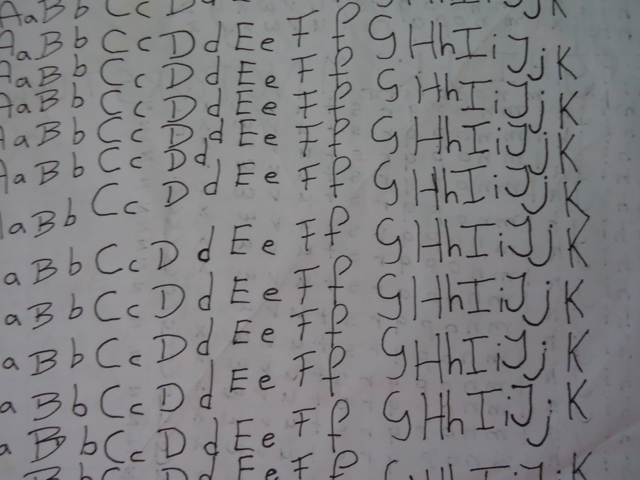 AaBbCcD
AaBbCcDdEeFfGHhIiJjK
AaBbCcDdEeFfGHhIiJjK
AaBbCcDdEeFfGHhIiJjK
AaBbCcDdEeFfGHhIiJjK
AaBbCcDdEeFfGHhIiJjK
aBbCcDdEeFfGHhIiJjK
aBbCcDdEeFfGHhIiJjK
aBbCcDdEeFfGHhIiJjK
aBbCcDdEeFf
aBbCcDdEeFf
aBbCcDdEeFf
BbCcDd